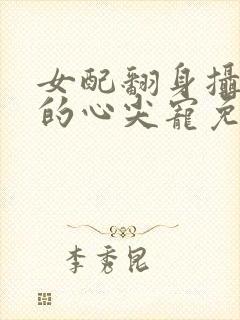 女配翻身攝
的心尖寵免
李秀昆